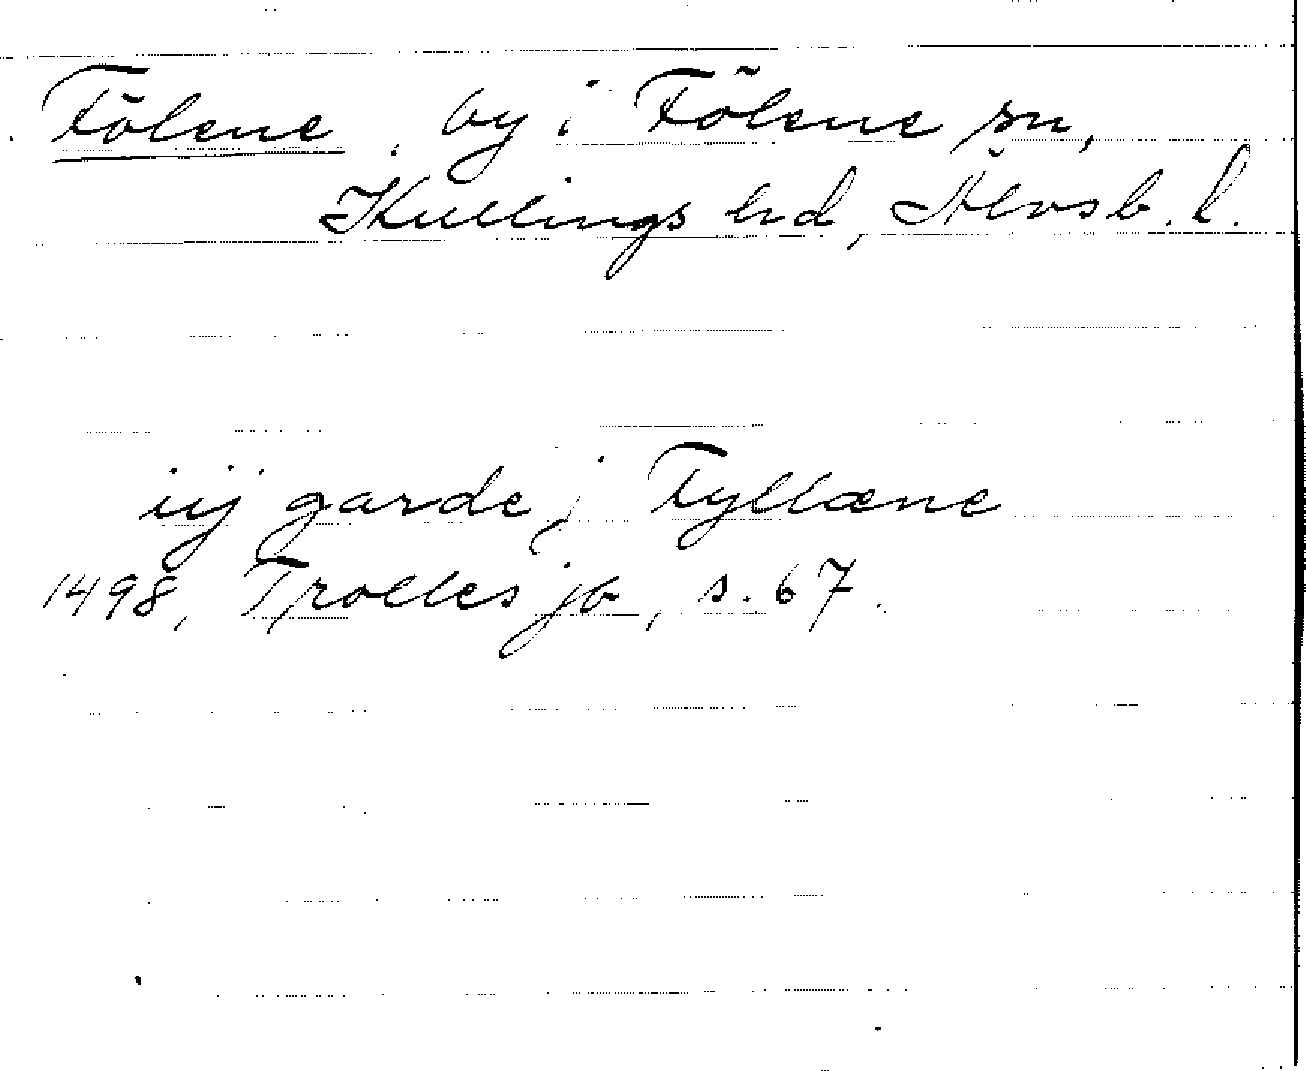 Fölene, by i Fölene sn,
Kullings hd, Älvsb. l.
iij garde j Fyllæne
1498, Trolles jb, s. 67.